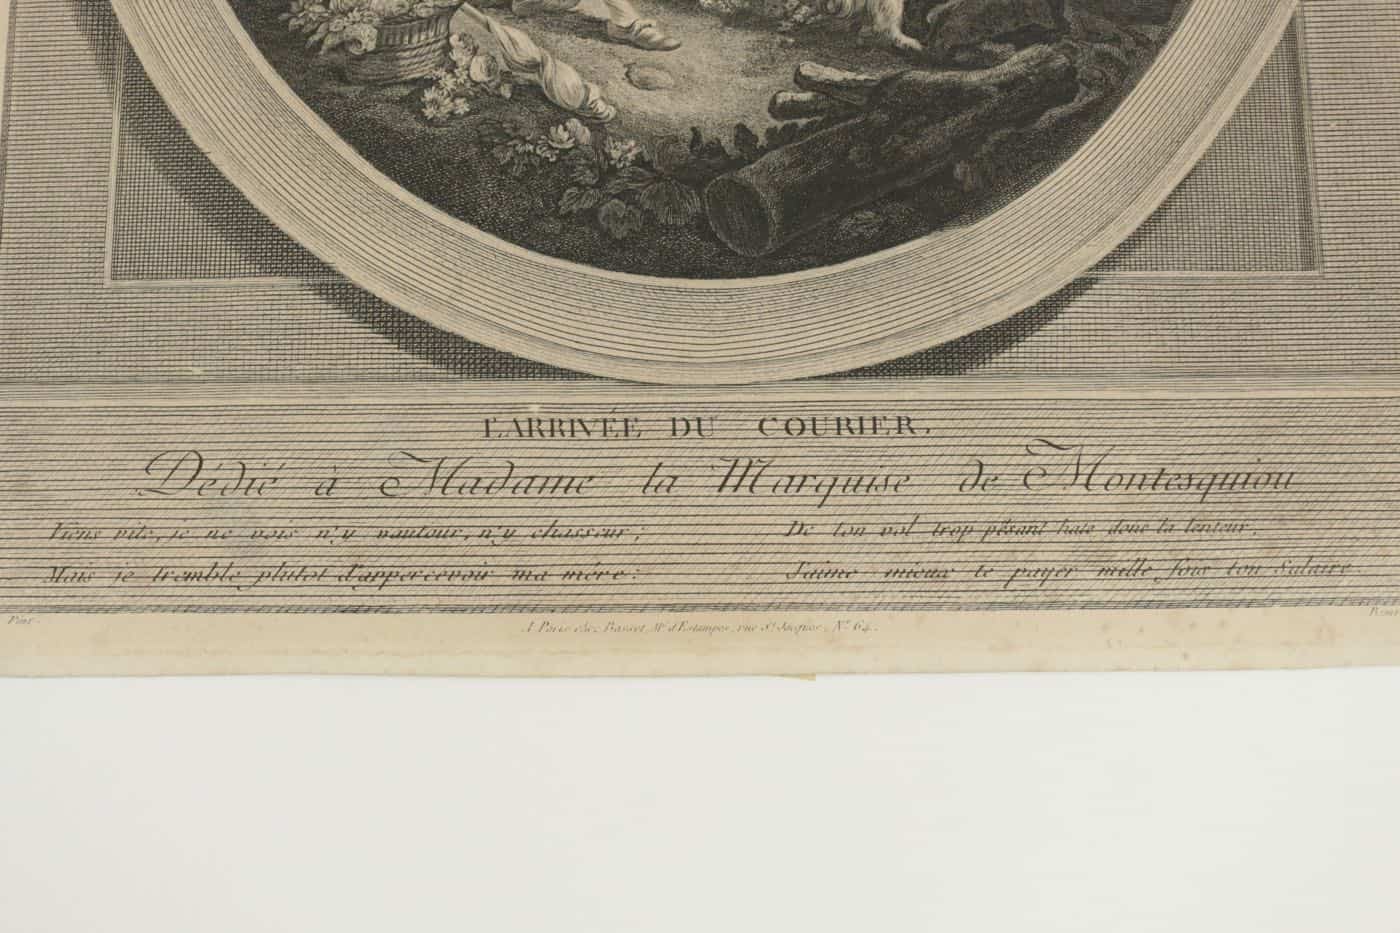 L'ARRIVÉE DU COURIER.
Dédié à Madame la Marquise de Montesquiou
Viens vite, je ne vois n'y vautour, n'y chasseur;
Mais je tremble plutot d'appercevoir ma mére:
De ton vol trop pésant hate donc la lenteur,
J'aime mieux te payer mille fois ton Salaire.
Pinx.
A Paris chez Basset, Md. d'Estampes, rue St. Jacques, No. 64.